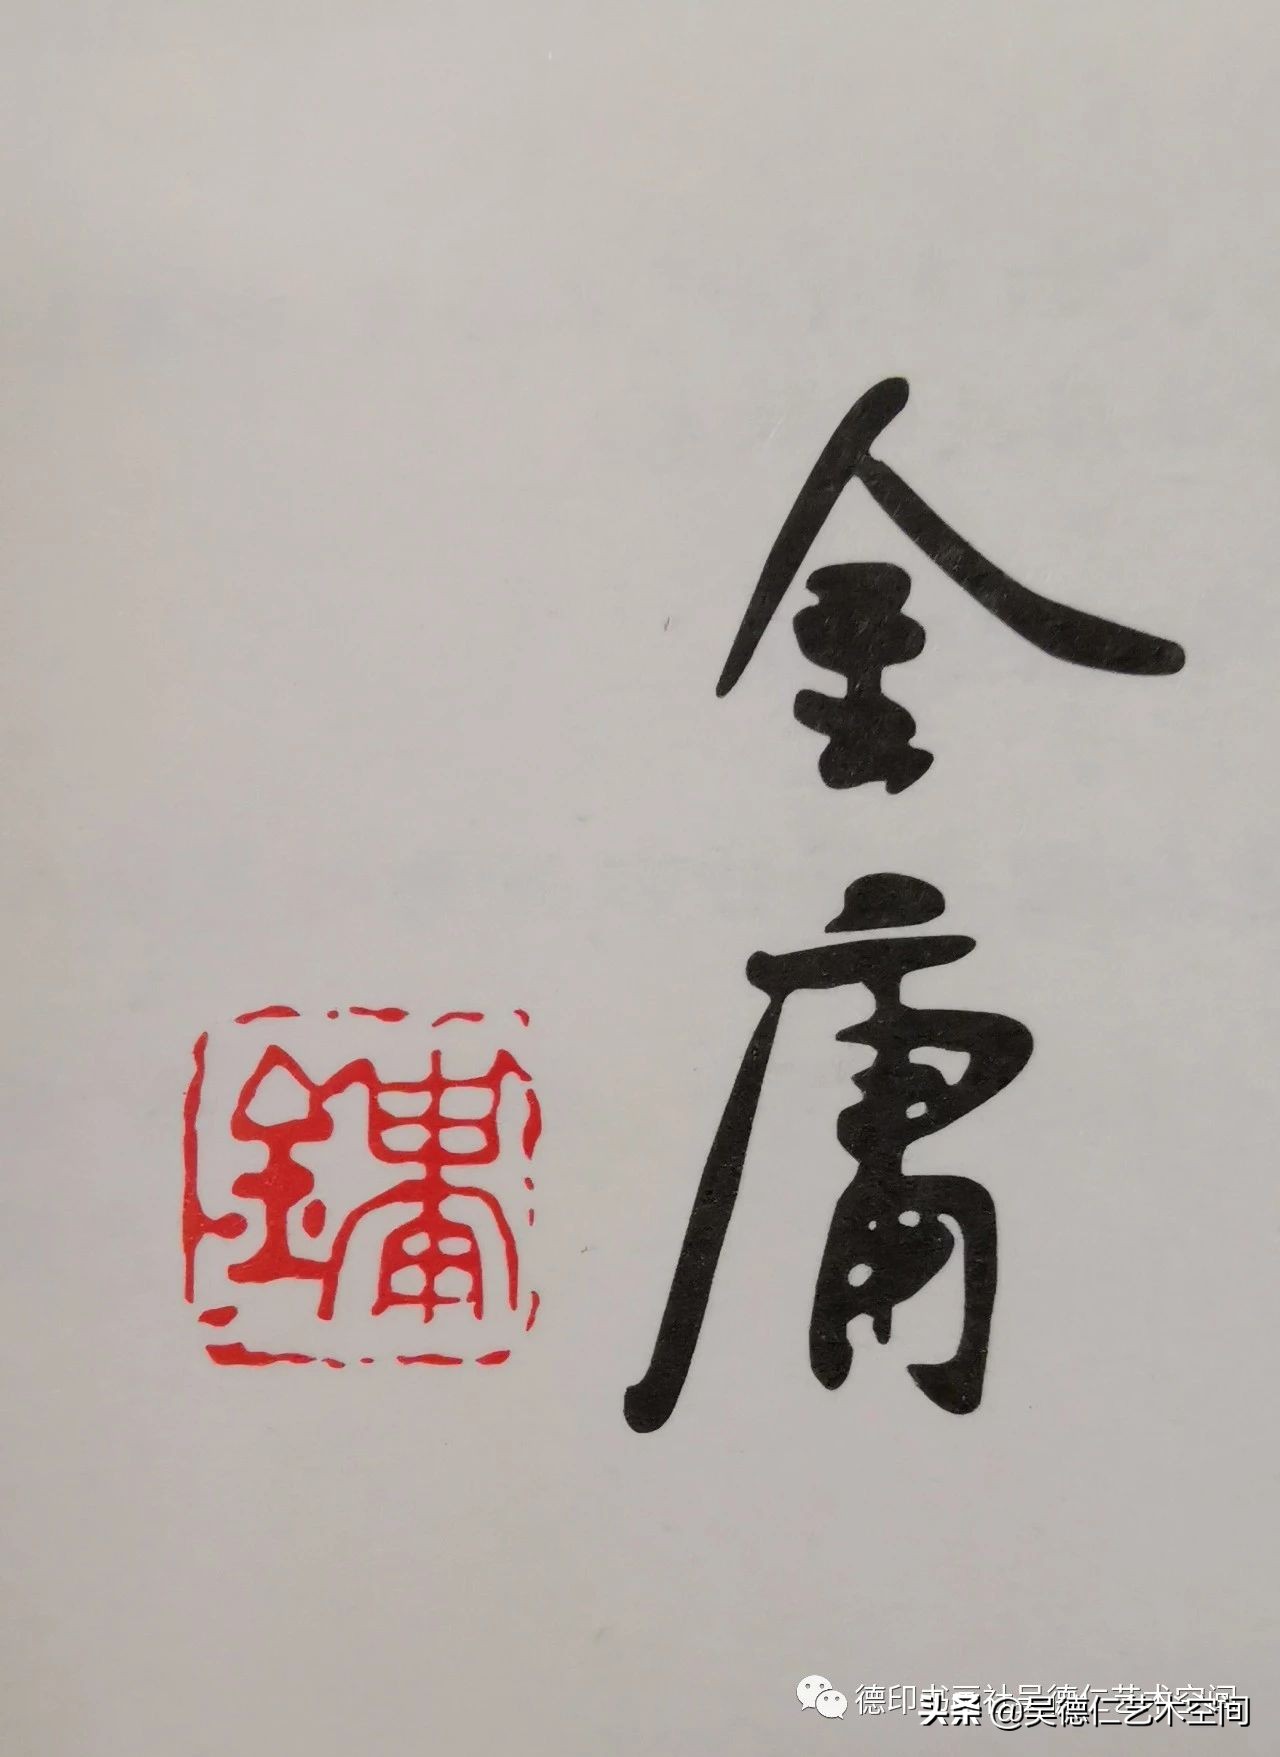 金庸
鏞
德印书画社吴德仁艺术空间
头条 @吴德仁艺术空间